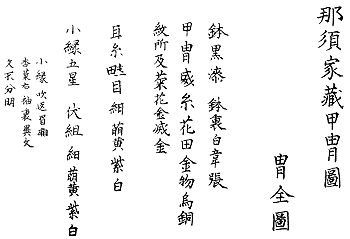 那須家藏甲冑圖
冑全圖
鉢黒漆 鉢裏白韋張
甲冑威糸花田金物烏銅
紋所及菜花金滅金
耳糸畦目組萌黄紫白
小縁五星 伏組 組萌黄紫白
小縁吹返眉廂
杏葉右袖裏異文
文不分明